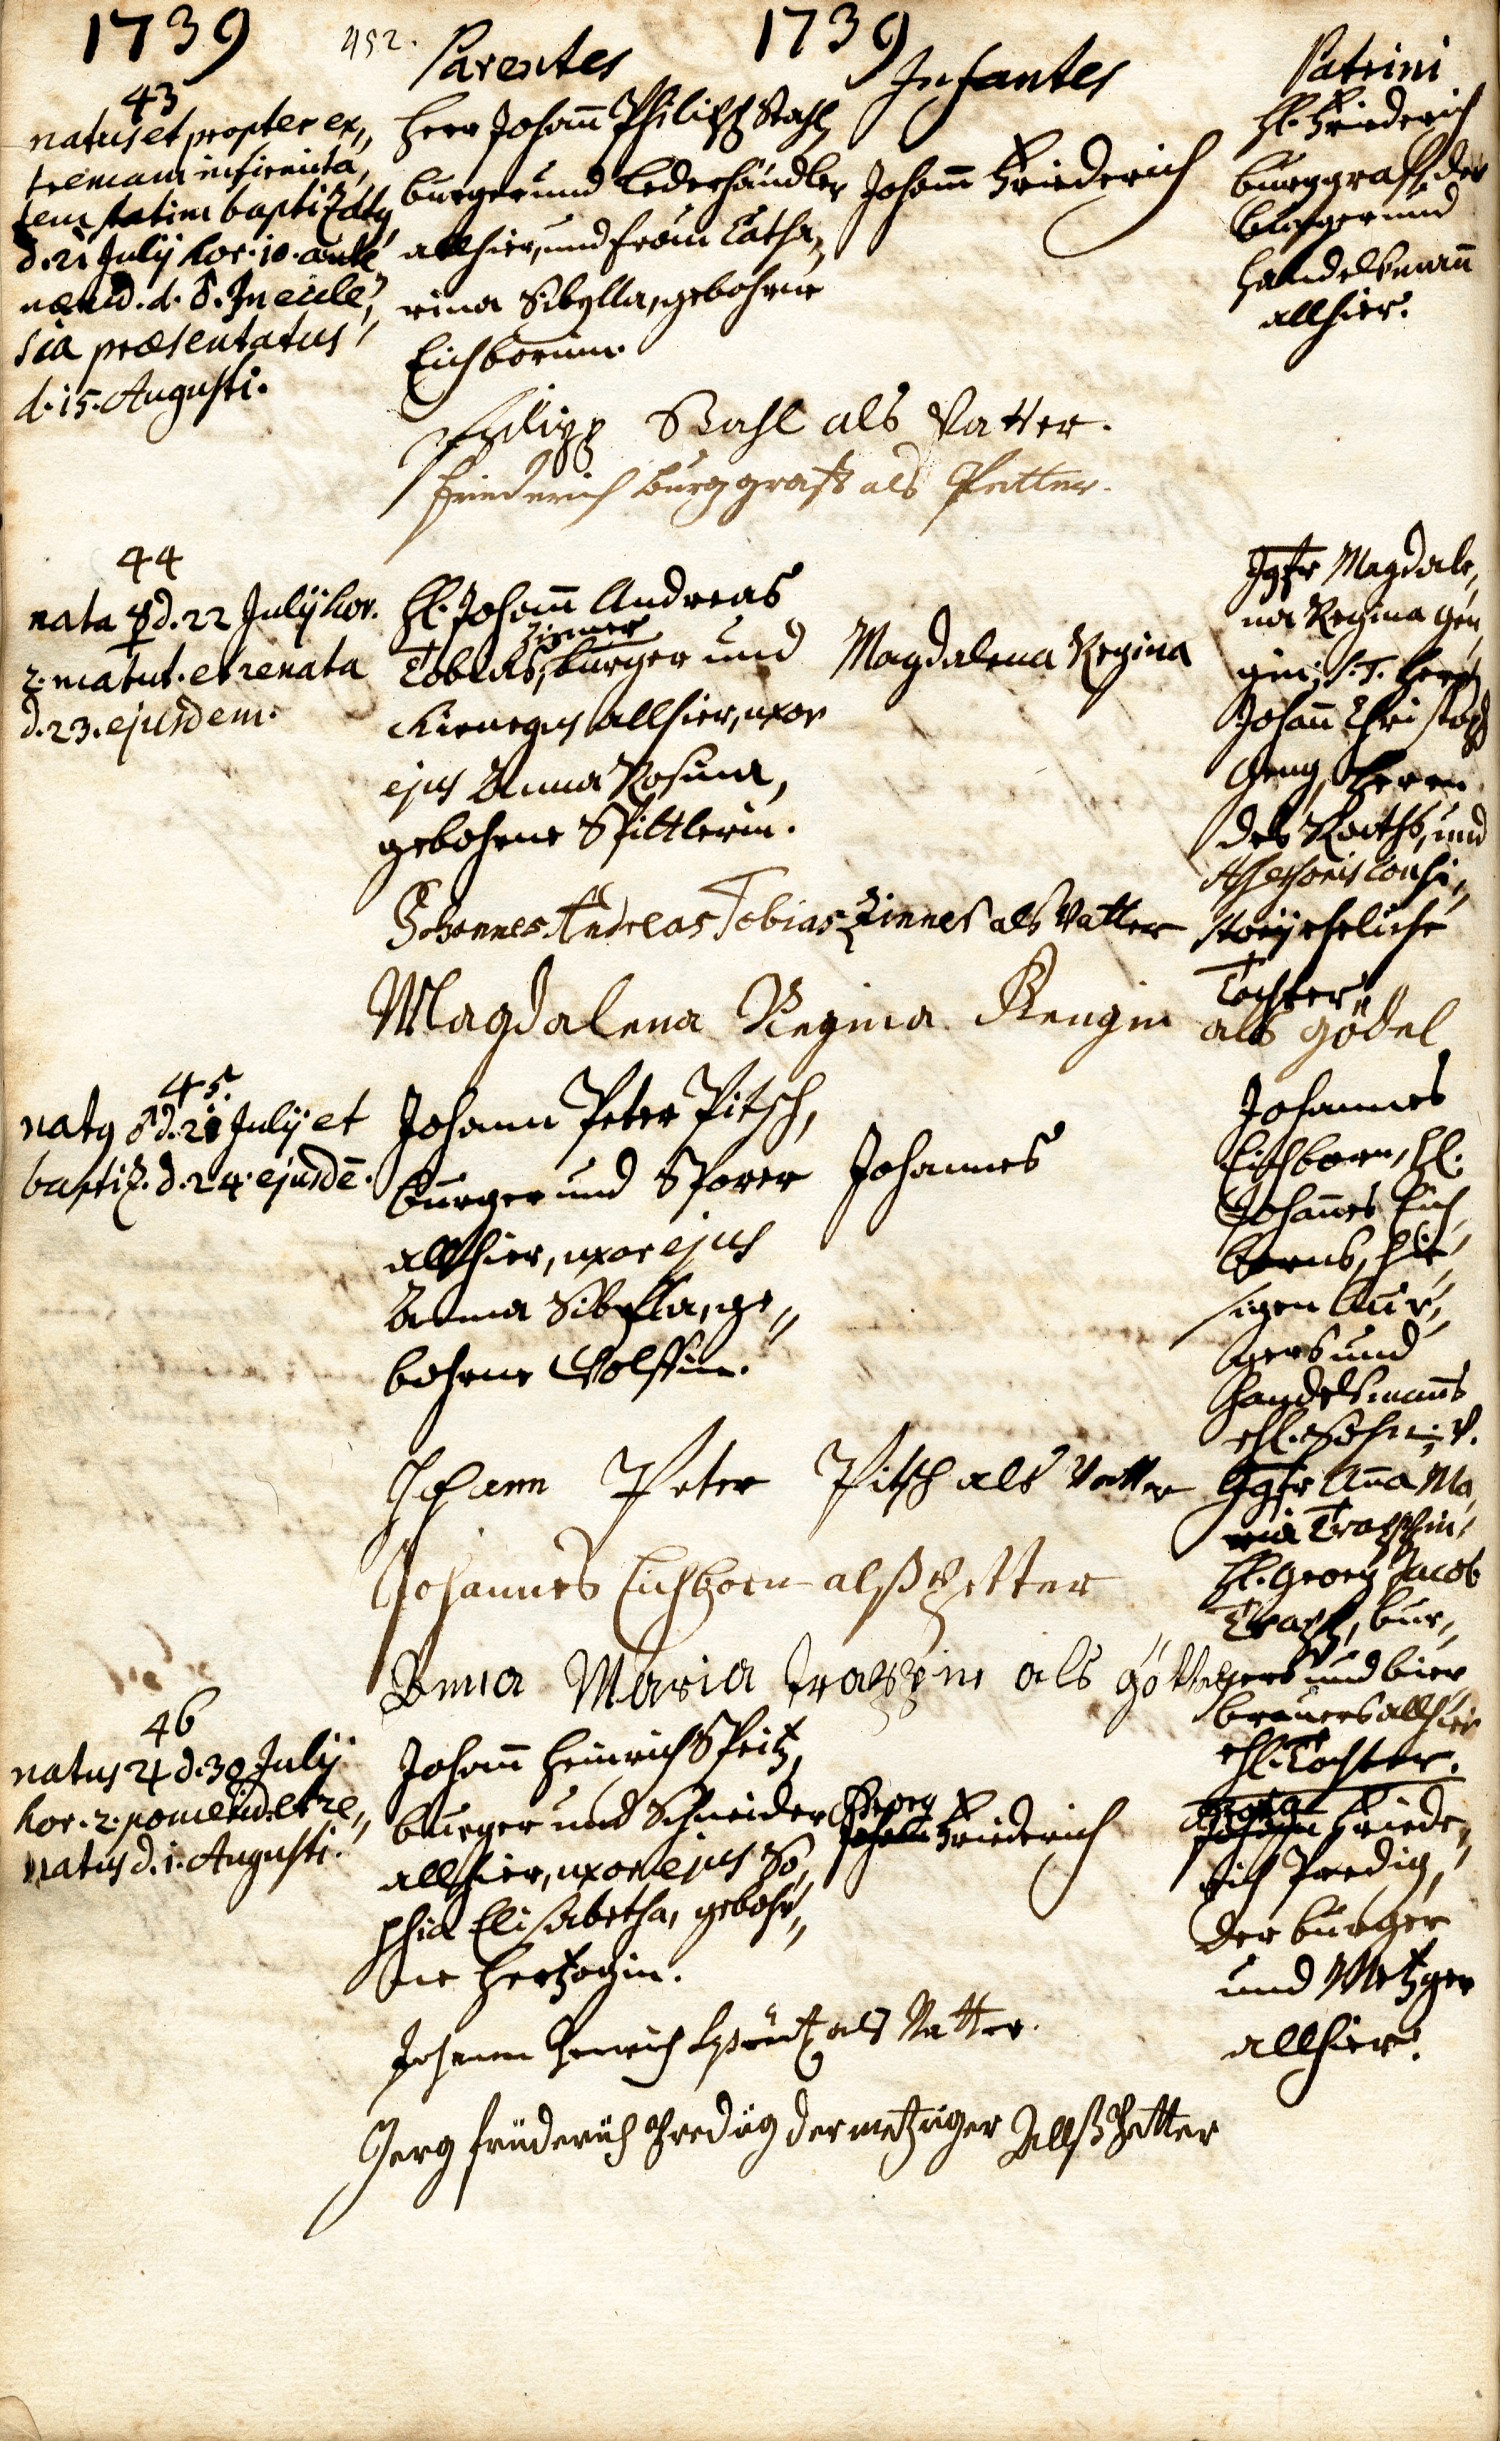 1739 452. 1739
Parentes Infantes Patrini
43
natus et propter ex„
tremam infirmita„
tem statim baptizatq
d. 21 July hor. 10. ante
merid. d. ♂. In eccle„
sia præsentatus
d. 15. Augusti.
Herr Johann Philipp Stahl,
burger und Lederhändler
allhier, und Frau Catha„
rina Sibylla, gebohrne
Eichbornin.
Johann Friederich
H. Friederich
Burggraff, der
burger und
Handelsmann
allhier.
Philipp Stahl als Vatter.
Friederich Burggraff als Petter.
44
nata ☿ d. 22 July hor.
2 matut. et renata
d. 23. ejusdem.
H. Johann Andreas
Zinner
Tobias, burger und
Chirurgus allhier, uxor
ejus Anna Rosina,
gebohrne Spittlerin.
Magdalena Regina
Jgfr Magdale„
na Regina Gen„
gin, S. T. Herrn
Johann Christoph
Geng, Herrn
des Raths, und
Assessoris Consi„
storij eheliche
Tochter.
Johannes Andreas Tobias Zinner als Vatter
Magdalena Regina Gengin als Gödel
45.
natq ♂ d. 21 July et
baptiz. d. 24. ejusdē.
Johann Peter Pitsch,
burger und Sporer
allhier, uxor ejus
Anna Sibylla, ge„
bohrne Wolffin.
Johannes
Johannes
Eichborn, H.
Johannes Eich„
borns, hie„
sigen bur„
gers und
Handelsmanns
ehl. Sohn; v.
Jgfr Anna Ma„
ria Trappin,
H. Georg Jacob
Trapp, bur„
gers und bier„
brauers allhier
ehl. Tochter.
Johann Peter Pitsch als Vatter
Johannes Eichborn alß Petter
Anna Maria Trappin als Göttel
46
natus ♃ d. 30 July
hor. 2. pomerid. et re„
natus d. 1. Augusti.
Johann Heinrich Spritz,
burger und Schneider
allhier, uxor ejus So„
phia Elisabetha, gebohr„
ne Hertzogin.
Georg
Johann Friederich
Georg
Johann Friede„
rich Predig,
der burger
und Metzger
allhier.
Johann Henrich Spritz als Vatter.
Gerg früderich Predig der metzger Allß Petter